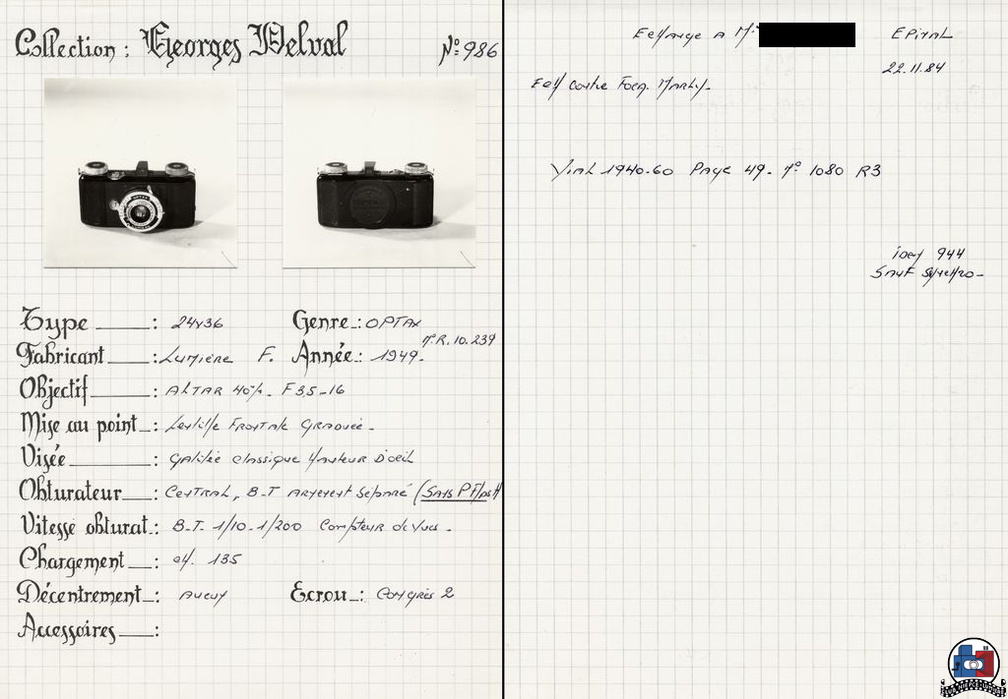 Collection : Georges Delval N° 986
Type : 24x36 Genre : OPTAX
Fabricant : Lumière F. Année : 1949. n°R. 10.239
Objectif : ALTAR 40%. F 3,5-16
Mise au point : Lentille Frontale Graduée -
Visée : Galilée Classique Hauteur D'oeil
Obturateur : Central, B-T Armement séparé (Sans P. Flash
Vitesse obturat. : B-T. 1/10-1/200 Compteur de Vues -
Chargement : ch. 135
Décentrement : aucun Ecrou : Congrès 2
Accessoires :
Echange a Mr Epinal
22.11.84
Ech contre Foca. Marly.
Vial 1940-60 Page 49. n° 1080 R3
idem 944
Sauf Synchro -